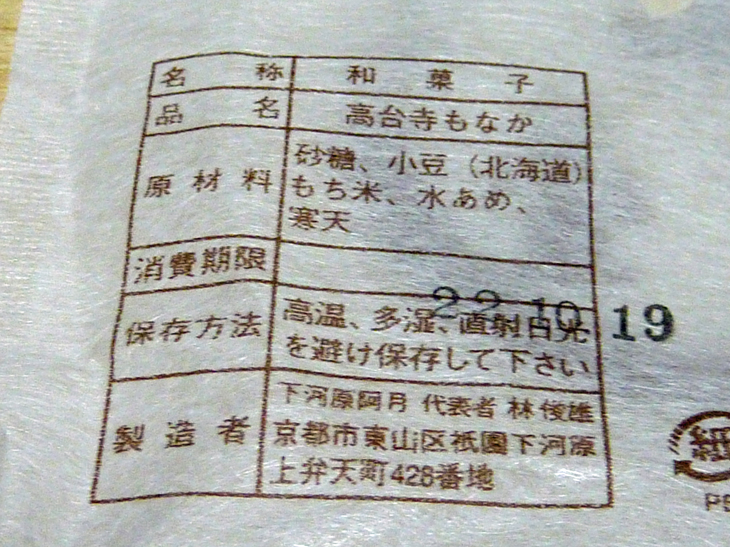 名称 和菓子
品名 高台寺もなか
原材料 砂糖、小豆（北海道）
もち米、水あめ、
寒天
消費期限
22.10.19
保存方法 高温、多湿、直射日光
を避け保存して下さい
製造者 下河原阿月 代表者 林俊雄
京都市東山区祇園下河原
上弁天町428番地
紙